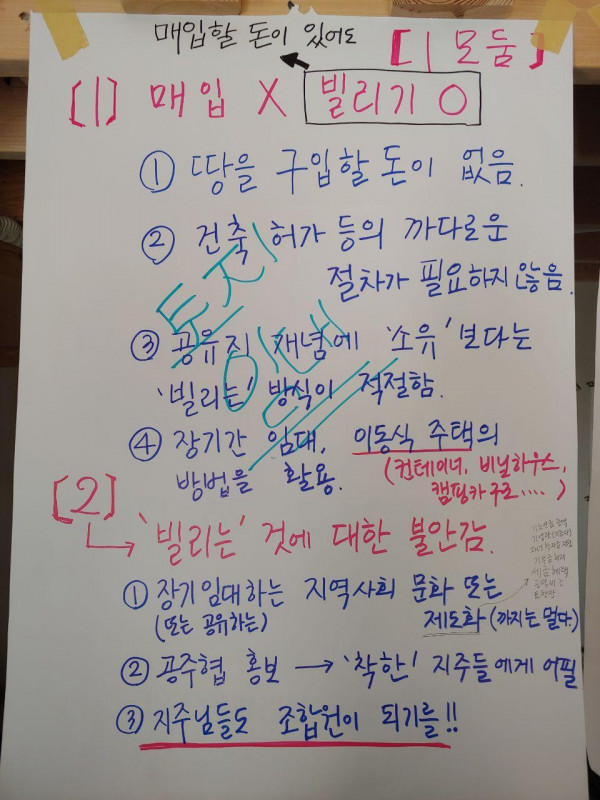 매입할 돈이 있어도
[1 모둠]
[1] 매입 X 빌리기 O
① 땅을 구입할 돈이 없음.
② 건축허가 등의 까다로운
절차가 필요하지 않음.
③ 공유지 개념에 '소유' 보다는
'빌리는' 방식이 적절함.
④ 장기간 임대, 이동식 주택의
방법을 활용.
(컨테이너, 비닐하우스,
캠핑카 구조 ....)
토지
임대
[2]
'빌리는' 것에 대한 불안감.
① 장기임대하는 지역사회 문화 또는
(또는 공유하는)
제도화 (까지는 멀다.)
② 공주협 홍보 → '착한' 지주들에게 어필
③ 지주님들도 조합원이 되기를!!